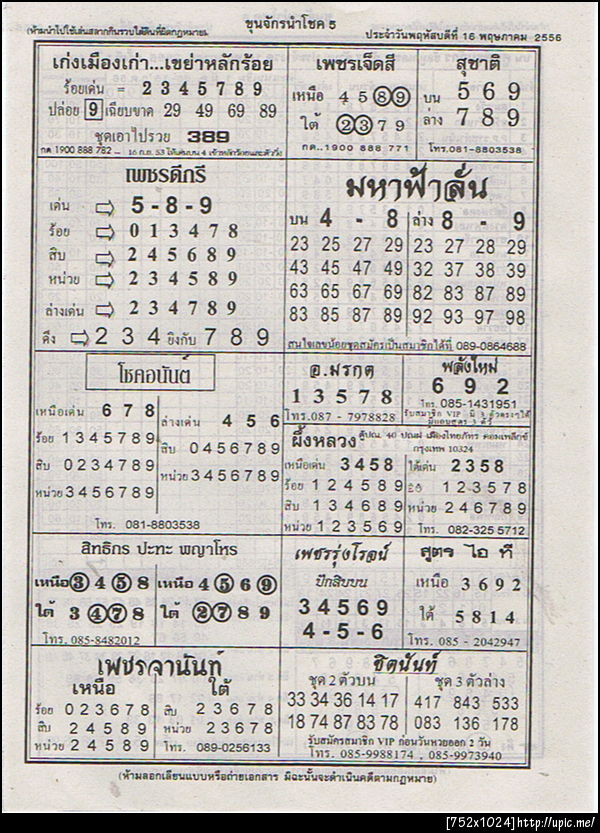 ขุนจักรนำโชค 5
(ห้ามนำไปใช้เล่นสลากกินรวบใต้ดินที่ผิดกฎหมาย)
ประจำวันพฤหัสบดีที่ 16 พฤษภาคม 2556
เก่งเมืองเก่า...เขย่าหลักร้อย
ร้อยเด่น = 2 3 4 5 7 8 9
ปล่อย 9 เฉียบขาด 29 49 69 89
ชุดเอาไปรวย 389
กด 1900 888 782
เพชรเจ็ดสี
เหนือ 4 5 8 9
ใต้ 2 3 7 9
กด..1900 888 771
สุชาติ
บน 5 6 9
ล่าง 7 8 9
โทร.081-8803538
เพชรดีกรี
เด่น 5 - 8 - 9
ร้อย 0 1 3 4 7 8
สิบ 2 4 5 6 8 9
หน่วย 2 3 4 5 8 9
ล่างเด่น 2 3 4 7 8 9
ดึง 2 3 4 ยิงกับ 7 8 9
มหาฟ้าลั่น
บน 4 - 8 ล่าง 8 - 9
23 25 27 29 23 27 28 29
43 45 47 49 32 37 38 39
63 65 67 69 82 83 87 89
83 85 87 89 92 93 97 98
สนใจเลขน้อยชุดสมัครเป็นสมาชิกได้ที่ 089-0864688
โชคอนันต์
เหนือเด่น 6 7 8
ร้อย 1 3 4 5 7 8 9
สิบ 0 2 3 4 7 8 9
หน่วย 3 4 5 6 7 8 9
ล่างเด่น 4 5 6
สิบ 0 4 5 6 7 8 9
หน่วย 3 4 5 6 7 8 9
โทร. 081-8803538
อ.มรกต
1 3 5 7 8
โทร.087 - 7978828
พลังใหม่
6 9 2
โทร. 085-1431951
รับสมาชิก VIP มี 3 ตัวตรงๆได้
ผึ้งหลวง ตู้ปณ. 40 ปณฝ เมืองไทยภัทร คอมเพล็กซ์
กรุงเทพ 10324
เหนือเด่น 3 4 5 8
ร้อย 1 2 4 5 8 9
สิบ 1 3 4 6 8 9
หน่วย 1 2 3 5 6 9
ใต้เด่น 2 3 5 8
1 2 3 5 7 8
หน่วย 2 4 6 7 8 9
โทร. 082-325 5712
สิทธิกร ปะทะ พญาโหร
เหนือ 3 4 5 8 เหนือ 4 5 6 9
ใต้ 3 4 7 8 ใต้ 2 7 8 9
โทร. 085-8482012
เพชรรุ่งโรจน์
ปักสิบบน
3 4 5 6 9
4 - 5 - 6
สูตร ไอ ที
เหนือ 3 6 9 2
ใต้ 5 8 1 4
โทร. 085 - 2042947
เพชรจานันท์
เหนือ ใต้
ร้อย 0 2 3 6 7 8 สิบ 2 3 6 7 8
สิบ 2 4 5 8 9 หน่วย 2 3 6 7 8
หน่วย 2 4 5 8 9 โทร. 089-0256133
ชิตนันท์
ชุด 2 ตัวบน ชุด 3 ตัวล่าง
33 34 36 14 17 417 843 533
18 74 87 83 78 083 136 178
รับสมัครสมาชิก VIP ก่อนวันหวยออก 2 วัน
โทร. 085-9988174 , 085-9973940
(ห้ามลอกเลียนแบบหรือถ่ายเอกสาร มิฉะนั้นจะดำเนินคดีตามกฎหมาย)
[752x1024]http://upic.me/